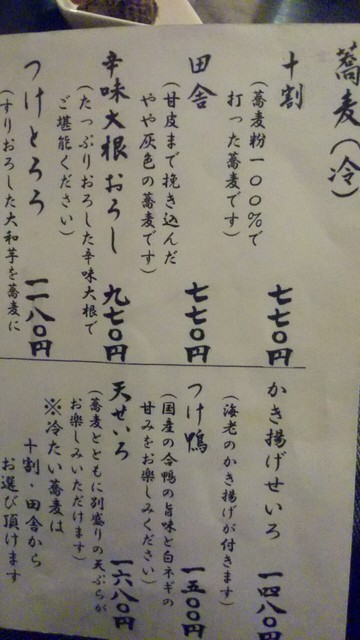 蕎麦(冷)
十割
(蕎麦粉一〇〇%で
打った蕎麦です)
七七〇円
田舎
(甘皮まで挽き込んだ
やや灰色の蕎麦です)
七七〇円
辛味大根おろし
(たっぷりおろした辛味大根で
ご堪能ください)
九七〇円
つけとろろ
(すりおろした大和芋を蕎麦に
一一八〇円
かき揚げせいろ
(海老のかき揚げが付きます)
一四八〇円
つけ鴨
(国産の合鴨の旨味と白ネギの
甘みをお楽しみください)
一五〇〇円
天せいろ
(蕎麦とともに別盛りの天ぷらが
お楽しみいただけます)
一六八〇円
※冷たい蕎麦は
十割・田舎から
お選び頂けます